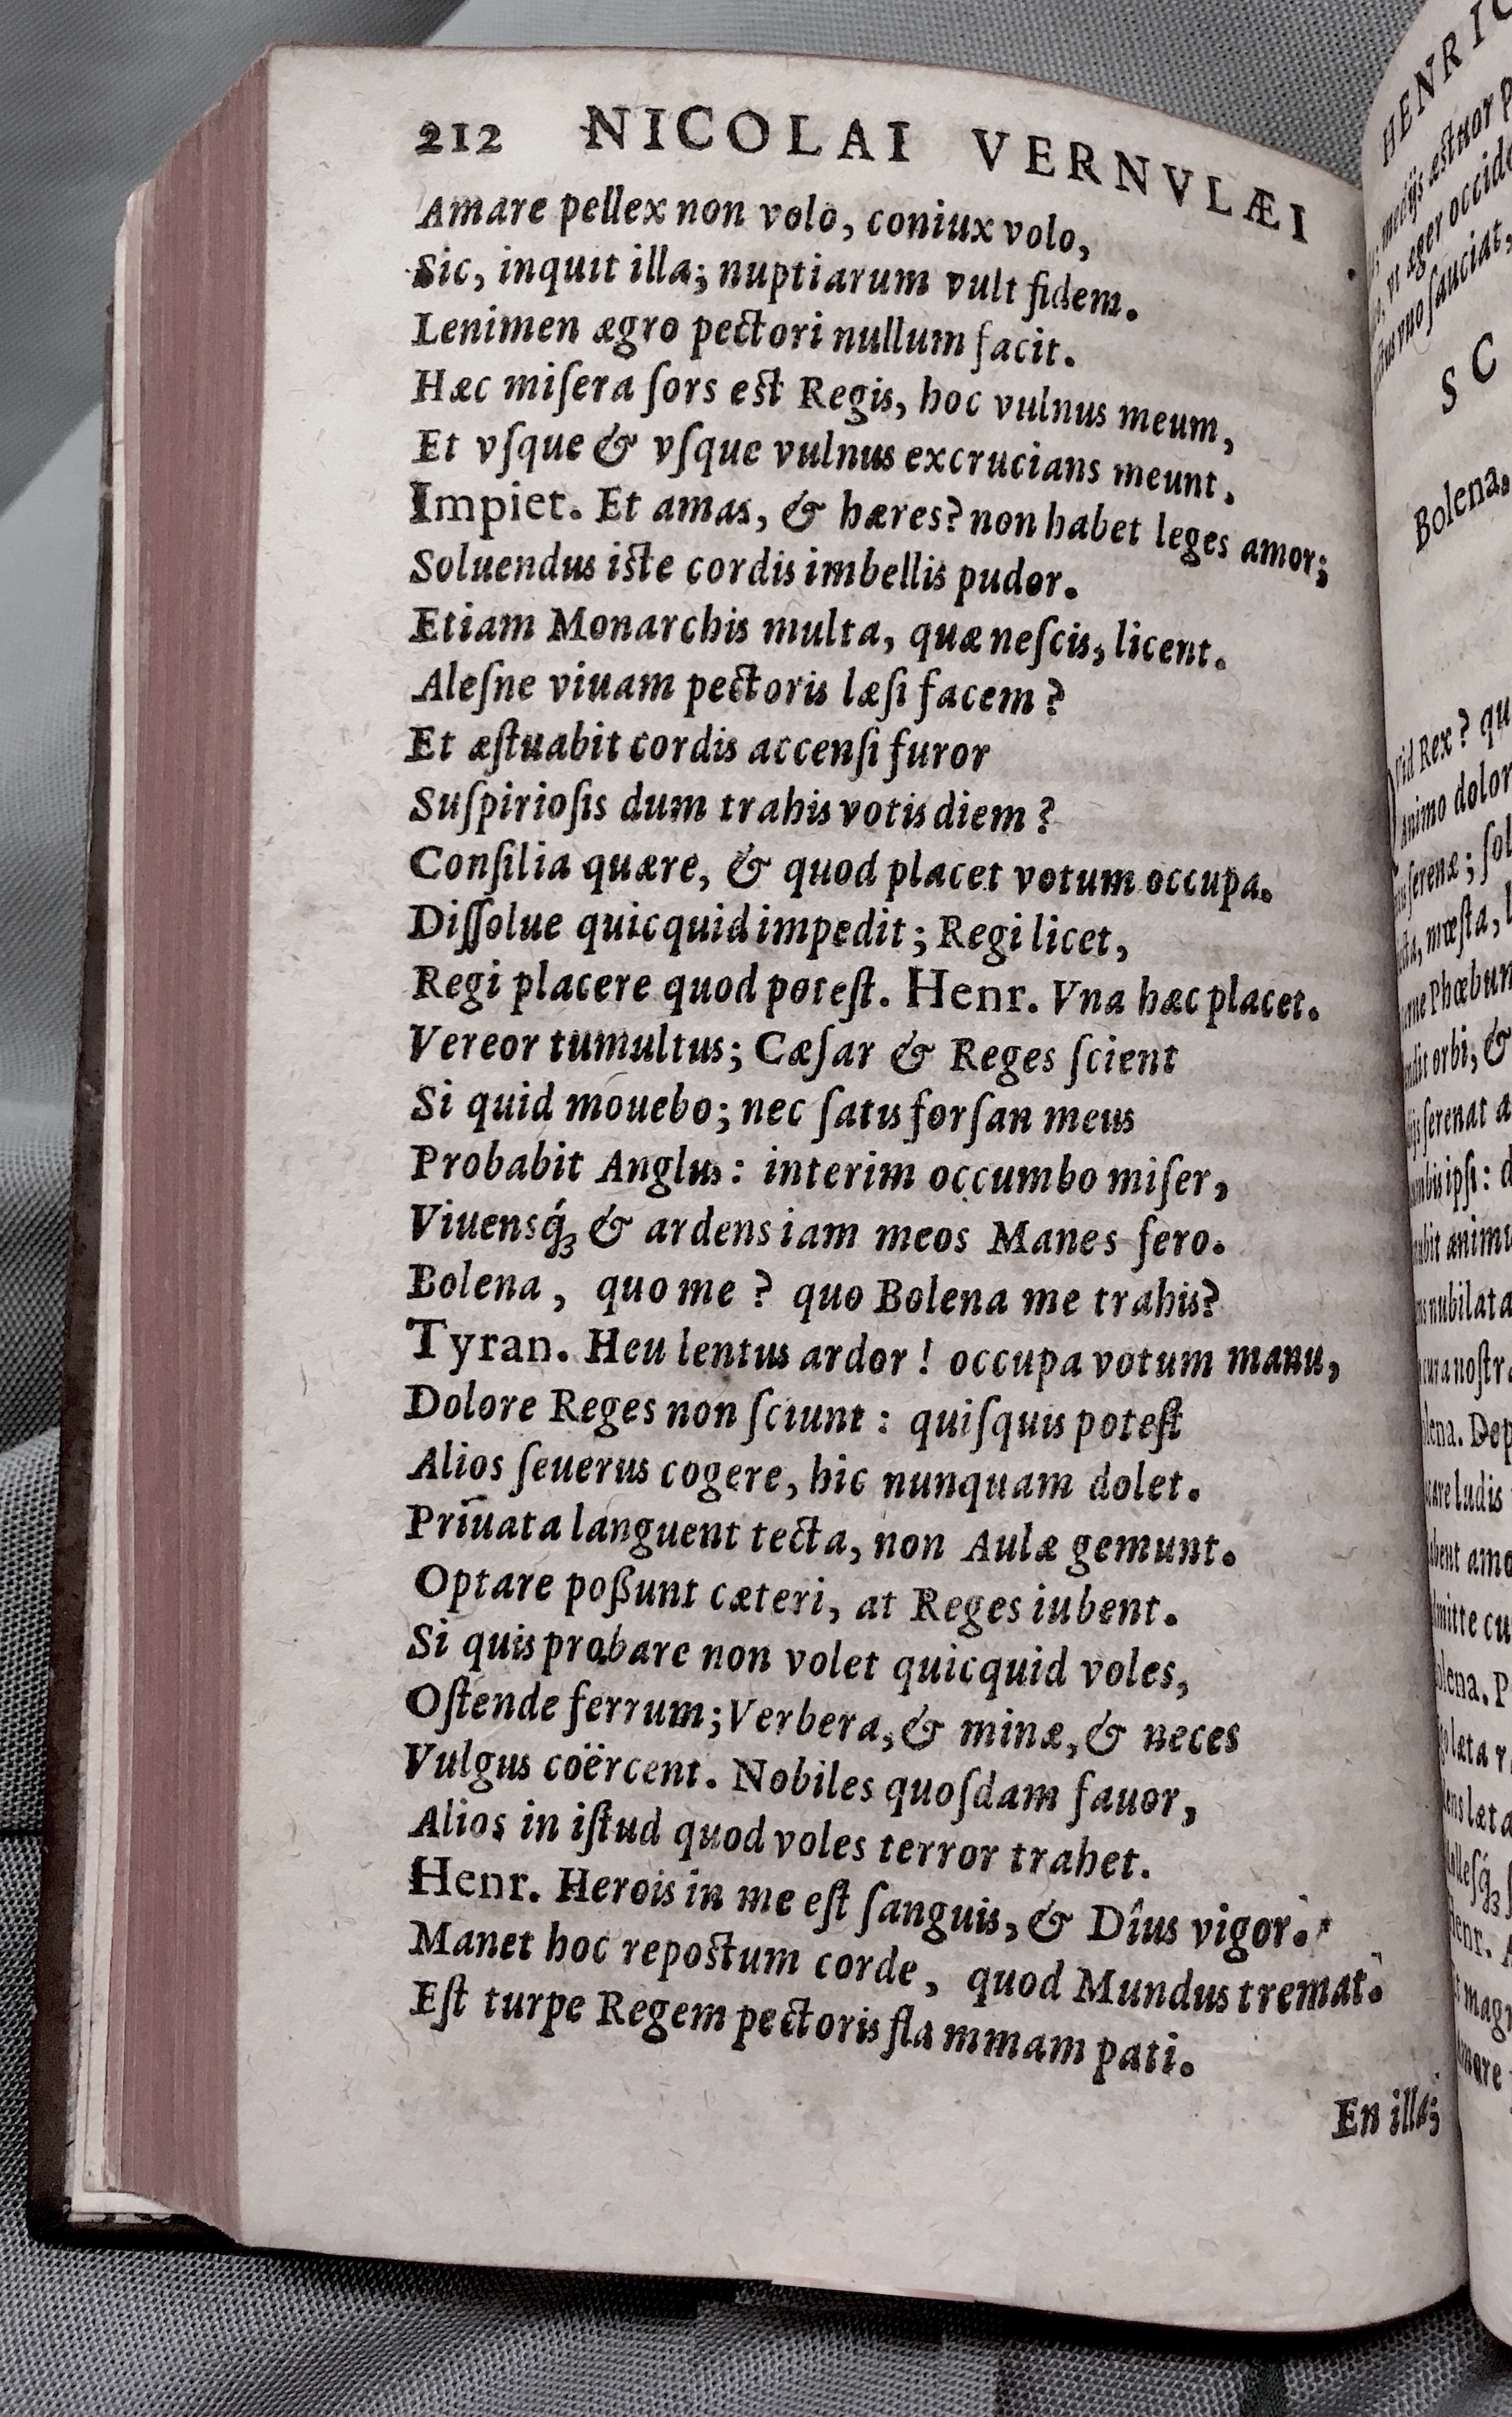 212 NICOLAI VERNVLÆI
Amare pellex non volo, coniux volo,
Sic, inquit illa; nuptiarum vult fidem.
Lenimen ægro pectori nullum facit.
Hæc miſera ſors est Regis, hoc vulnus meum,
Et vſque & vſque vulnus excrucians meunt.
Impiet. Et amas, & hæres? non habet leges amor;
Soluendus iste cordis imbellis pudor.
Etiam Monarchis multa, quæ neſcis, licent.
Aleſne viuam pectoris læſi facem?
Et æſtuabit cordis accenſi furor
Suſpirioſis dum trahis votis diem?
Conſilia quære, & quod placet votum occupa.
Diſſolue quicquid impedit; Regi licet,
Regi placere quod poteſt. Henr. Vna hæc placet.
Vereor tumultus; Cæſar & Reges ſcient
Si quid mouebo; nec ſatis forſan meus
Probabit Anglus: interim occumbo miſer,
Viuensq́ꝫ & ardens iam meos Manes fero.
Bolena, quo me? quo Bolena me trahis?
Tyran. Heu lentus ardor! occupa votum manu,
Dolore Reges non ſciunt: quiſquis poteſt
Alios ſeuerus cogere, hic nunquam dolet.
Priuata languent tecta, non Aulæ gemunt.
Optare poßunt cæteri, at Reges iubent.
Si quis probare non volet quicquid voles,
Oſtende ferrum; Verbera, & minæ, & neces
Vulgus coërcent. Nobiles quoſdam fauor,
Alios in iſtud quod voles terror trahet.
Henr. Herois in me eſt ſanguis, & Dîus vigor.
Manet hoc repostum corde, quod Mundus tremat.
Eſt turpe Regem pectoris flammam pati.
En illa;
HENRIC
S C
Bolena.